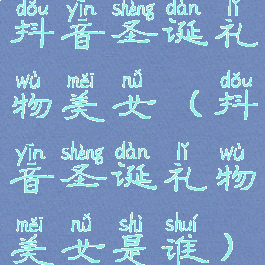 dǒu yīn shèng dàn lǐ
抖音圣诞礼
wù měi nǚ dǒu
物美女（抖
yīn shèng dàn lǐ wù
音圣诞礼物
měi nǚ shì shuí
美女是谁）